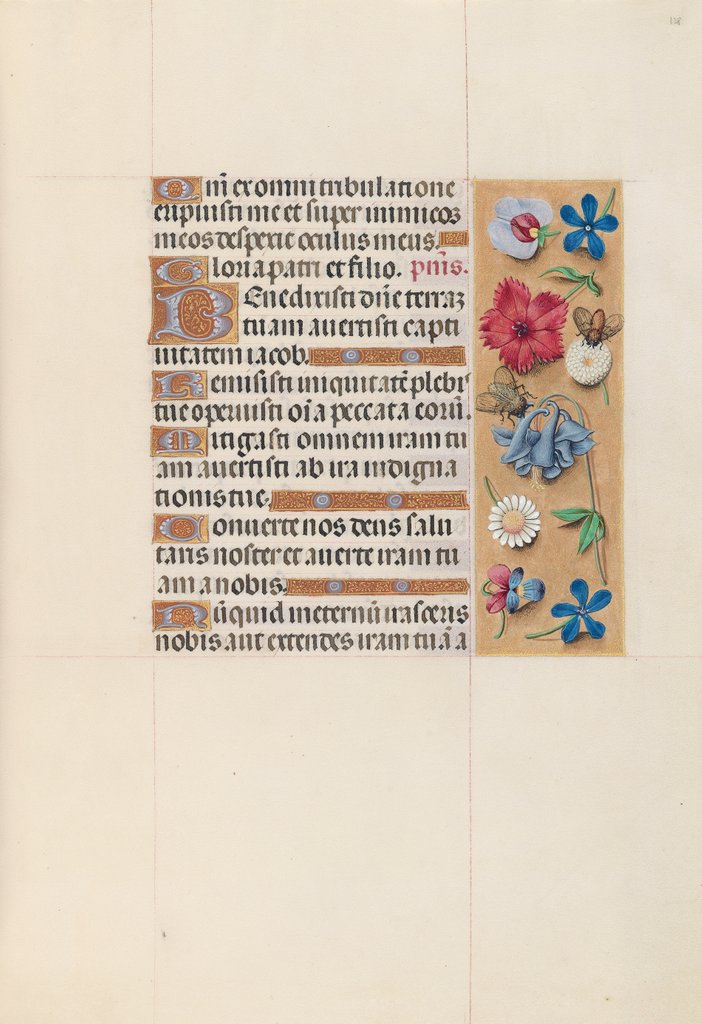 138
Qm̄ ex omni tribulatione
eripuisti me et super inimicos
meos despexit oculus meus.
Gloria patri et filio. p̄us.
Benedixisti dn̄e terraʒ
tuam auertisti capti
uitatem iacob.
Remisisti iniquitatē plebis
tue operuisti oīa peccata eorū.
Mitigasti omnem iram tu
am auertisti ab ira indigna
tionis tue.
Conuerte nos deus salu
taris noster et auerte iram tu
am a nobis.
Nūquid in eternū irasceris
nobis aut extendes iram tuā a